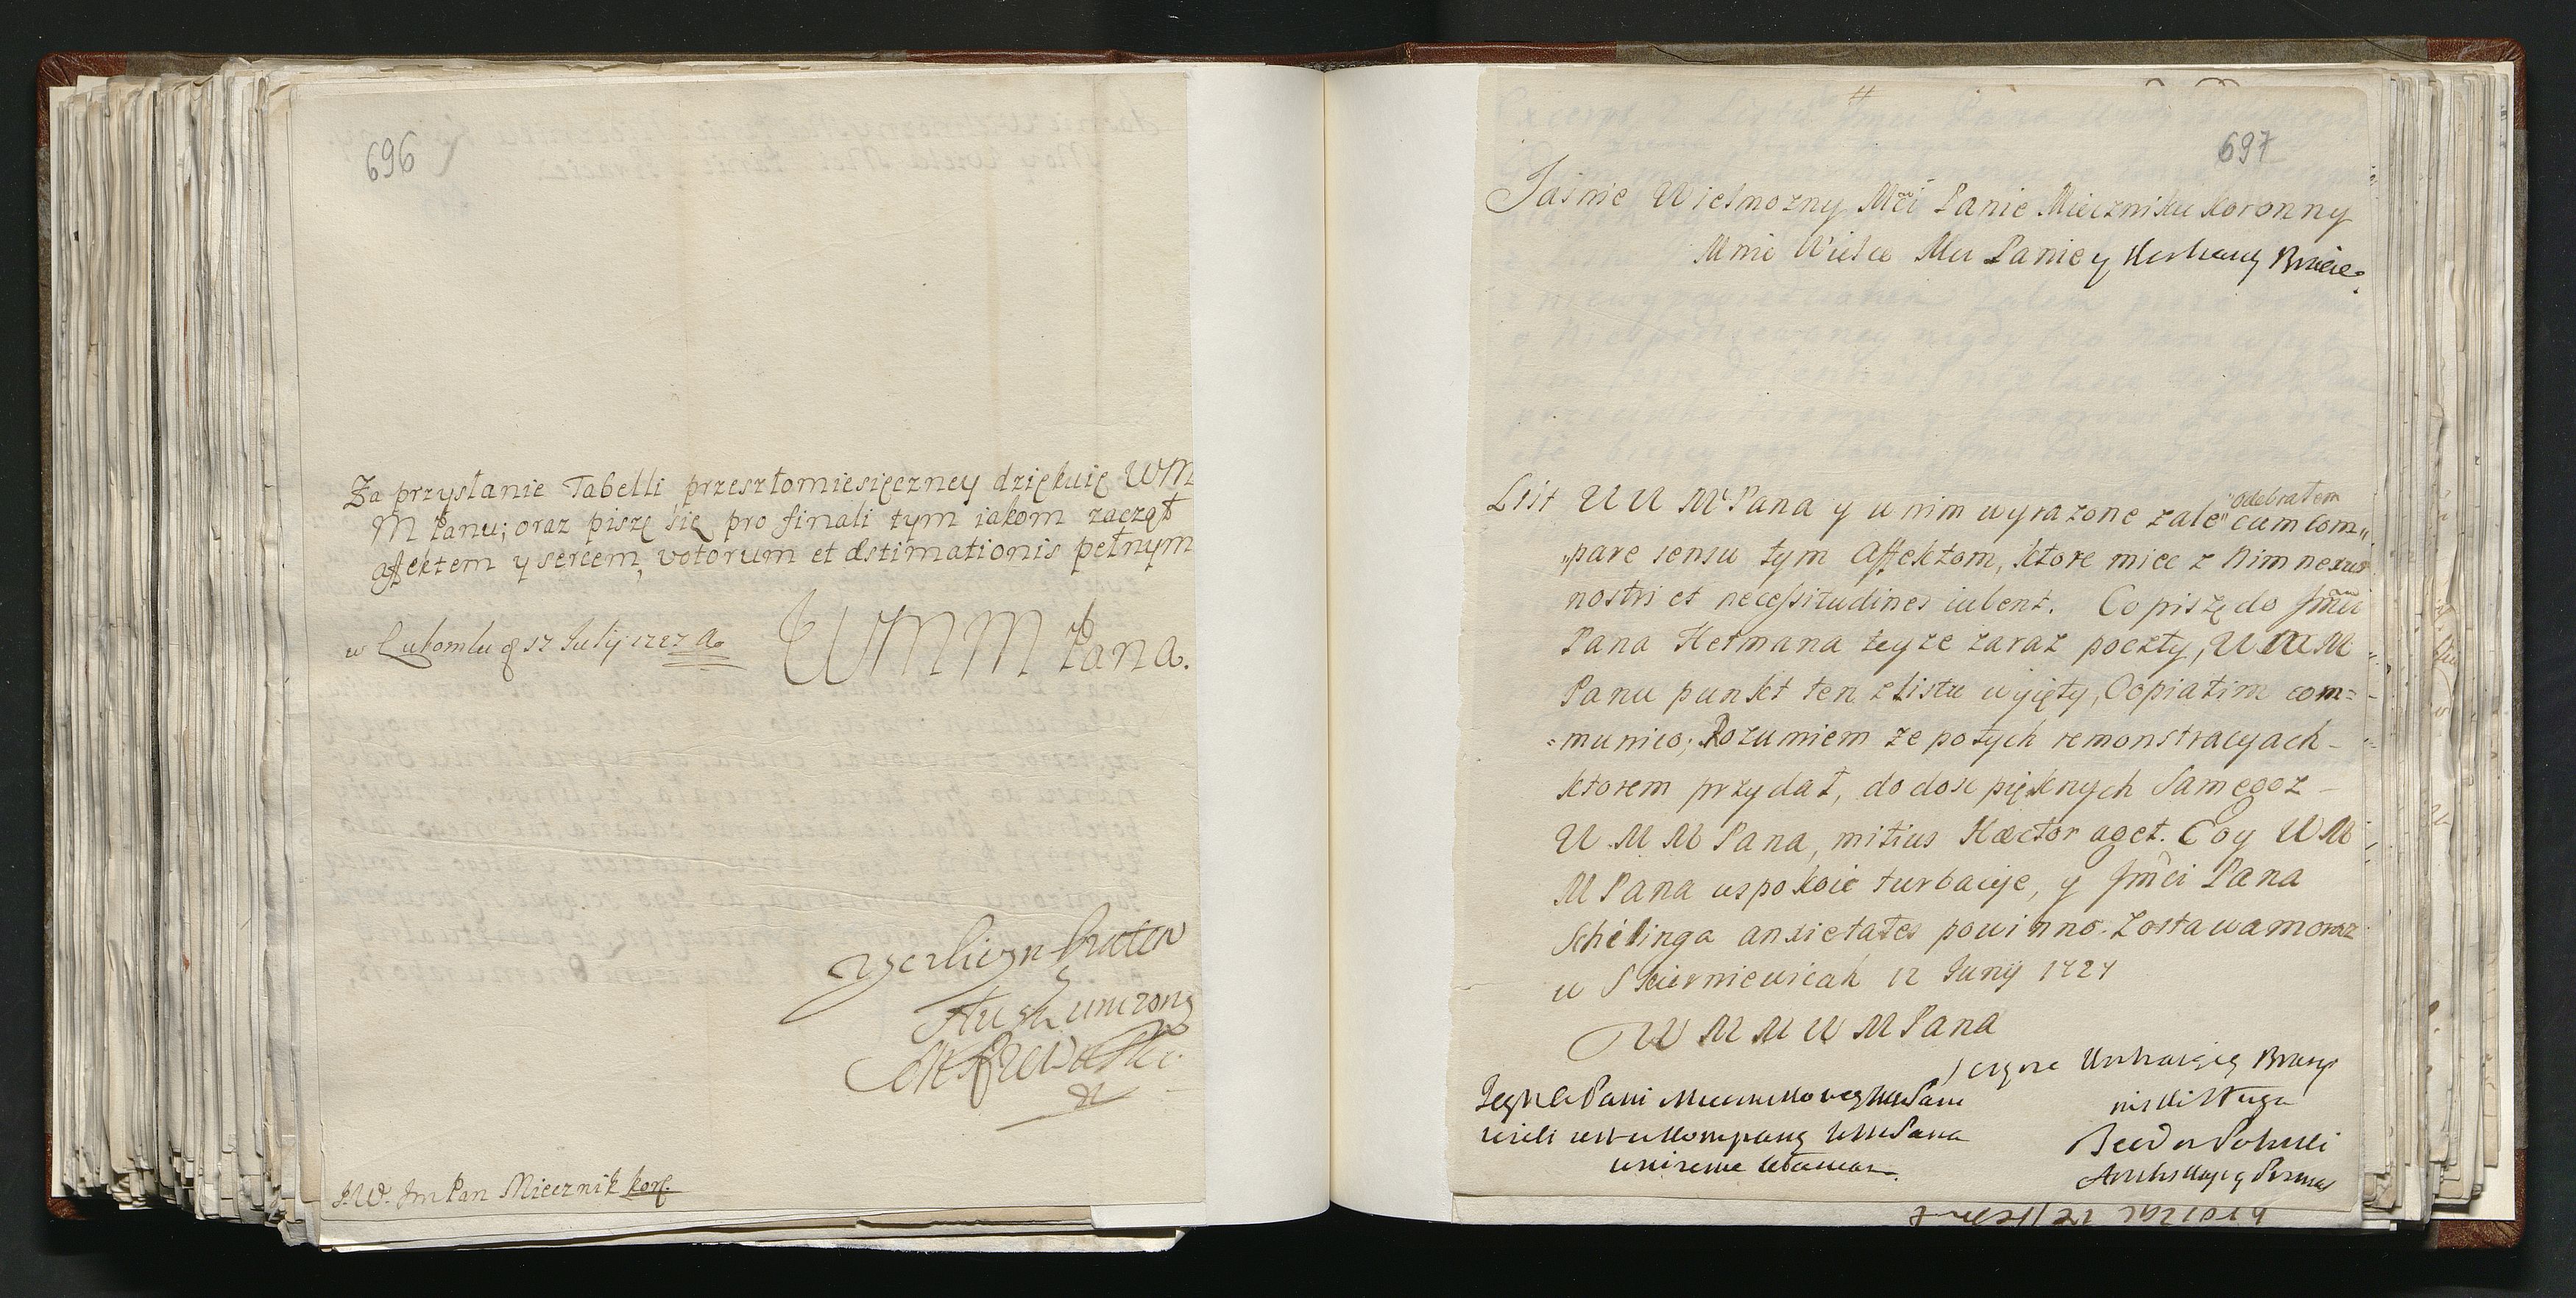 696
Za przysłanie Tabelli przeszłomiesięczney dziękuię WM
M Panu; oraz piszę się pro finali tym iakom zaczął
affektem y sercem, votorum et æstimationis pełnym
w Lubomlu d 17 Julij 1727 Ao
WMM Pana.
J.W. Jm Pan Miecznik kor.
697
Jasnie Wielmozny Mci Panie Mieczniku Koronny
Mnie Wielce Mci Panie y Kochany Bracie.
List W M Pana y w nim wyrazone zale odebrałem cum com„
„pare sensu tym Affektom, ktore miec z Nim nexus
nostri et necessitudines iubent. Co piszę do Jmci
Pana Hetmana teyze zaraz poczty, W M M
Panu punkt ten z listu wyięty, Copiatim com=
=munico; Rozumiem ze po tych remonstracyach
ktorem przydał, do dosc pięknych Samegoz
W M M Pana, mitius Hector aget. Co y W M
M Pana uspokoić turbacyje, y Jmci Pana
Schilinga anxietates powinno. Zostawam oraz
w Skierniewicah 12 Junij 1727
W M M W M Pana